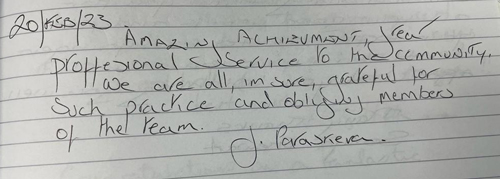 20/FEB/23.
AMAZING ACHIEVMENT, great
proffesional Service to the community.
We are all, im sure, grateful for
such practice and obliging members
of the team.
J. Paraskeva.